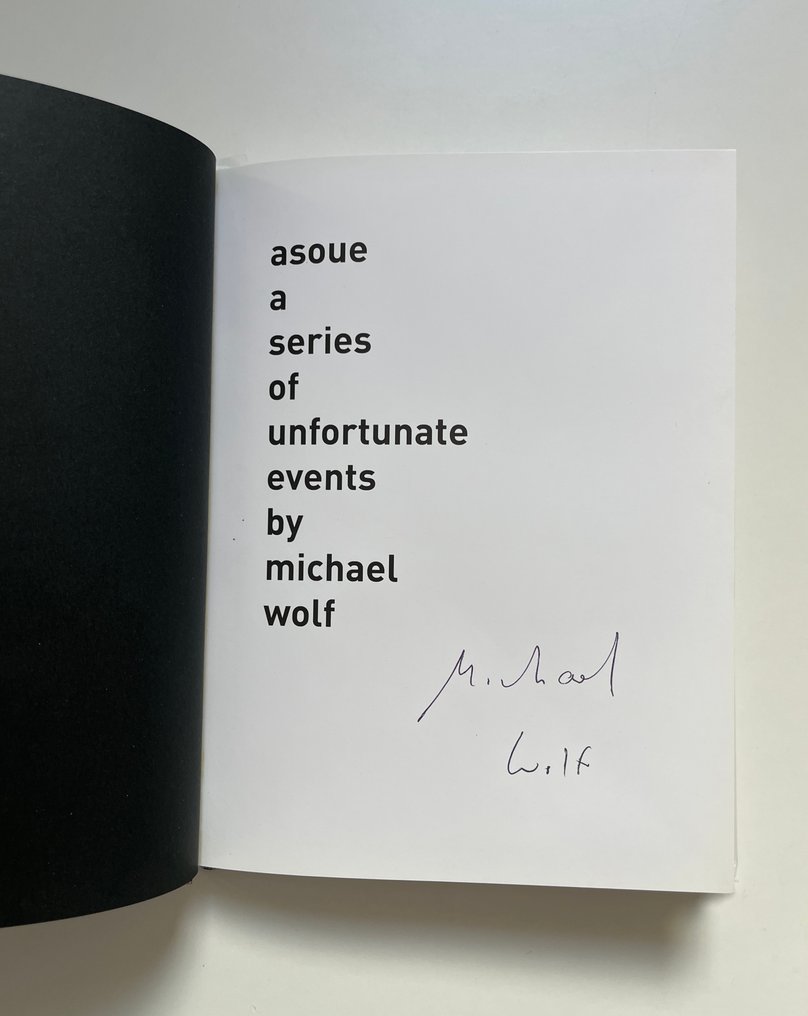 asoue
a
series
of
unfortunate
events
by
michael
wolf
Michael
Wolf